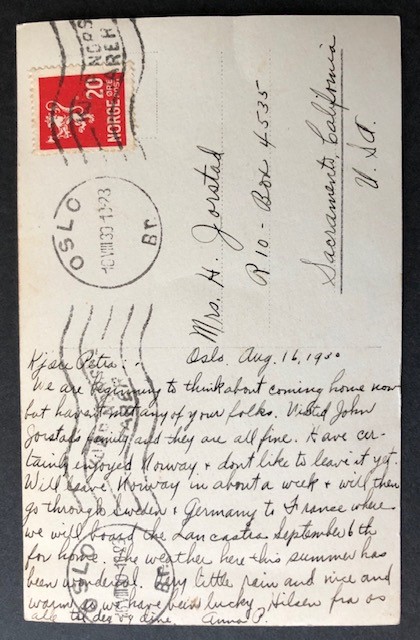 NORGE
20 ØRE
NORSKE VARER
OSLO
Br.
Mrs. H. Jorstad
R 10 - Box 4535
Sacramento, California
U. S. A.
Kjære Petra:-
Oslo. Aug. 16, 19
We are beginning to think about coming home now
but haven't met any of your folks. Visited John
Jorstads family and they are all fine. Have cer-
tainly enjoyed Norway + dont like to leave it yet.
Will leave Norway in about a week + will then
go through Sweden + Germany to France where
we will board the Lancastria September 6th
for home. The weather here this summer has
been wonderful. Very little rain and nice and
warm so we have been lucky. Hilsen fra os
alle til deg og dine. Anna P.
OSLO
Br.